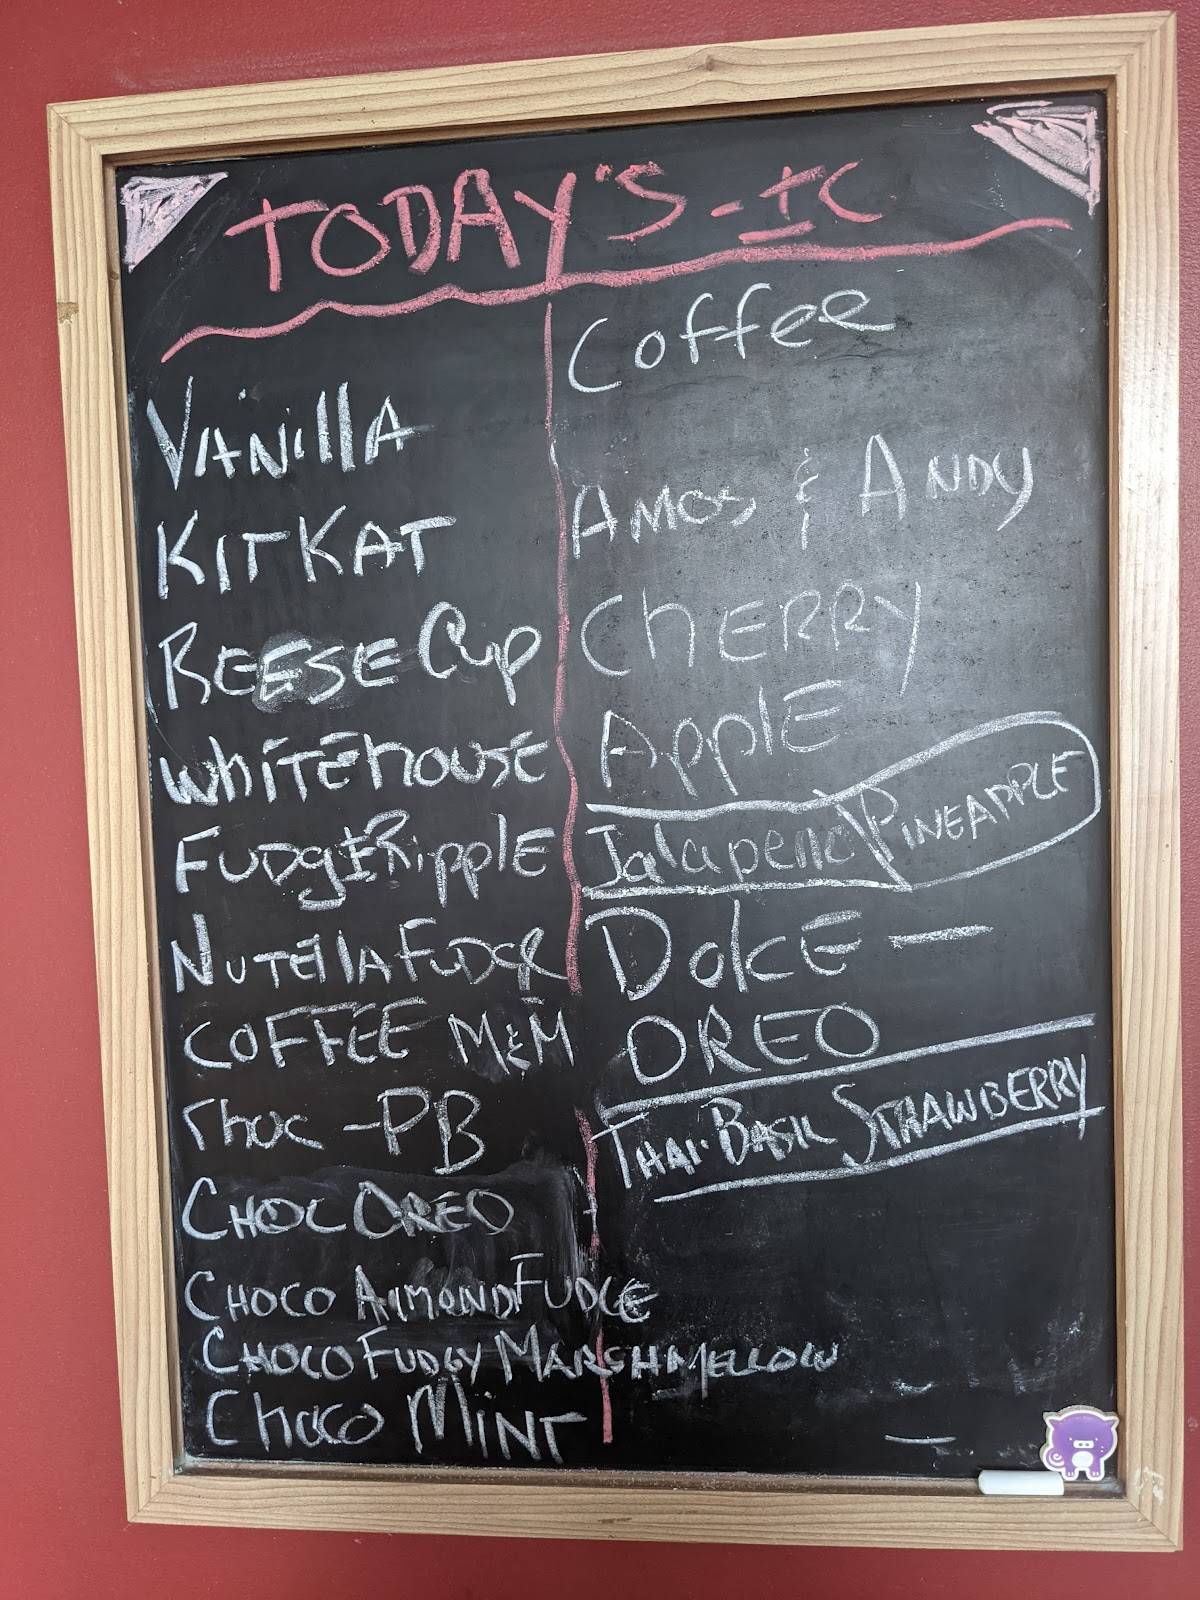 TODAY'S - IC
VANillA
KITKAT
REESE Cup
WhiTEhOUSE
FUDgE RippLE
NUTEllA FUDGE
COFFEE M&M
Choc - PB
CHOC OREO
CHOCO ALMOND FUDGE
CHOCO FUDGY MARSHMELLOW
Choco MiNT
Coffee
AMOS & ANDY
ChERRY
ApplE
Jalapeno PINEAPPLE
DolcE —
OREO
THAI BASIL STRAWBERRY